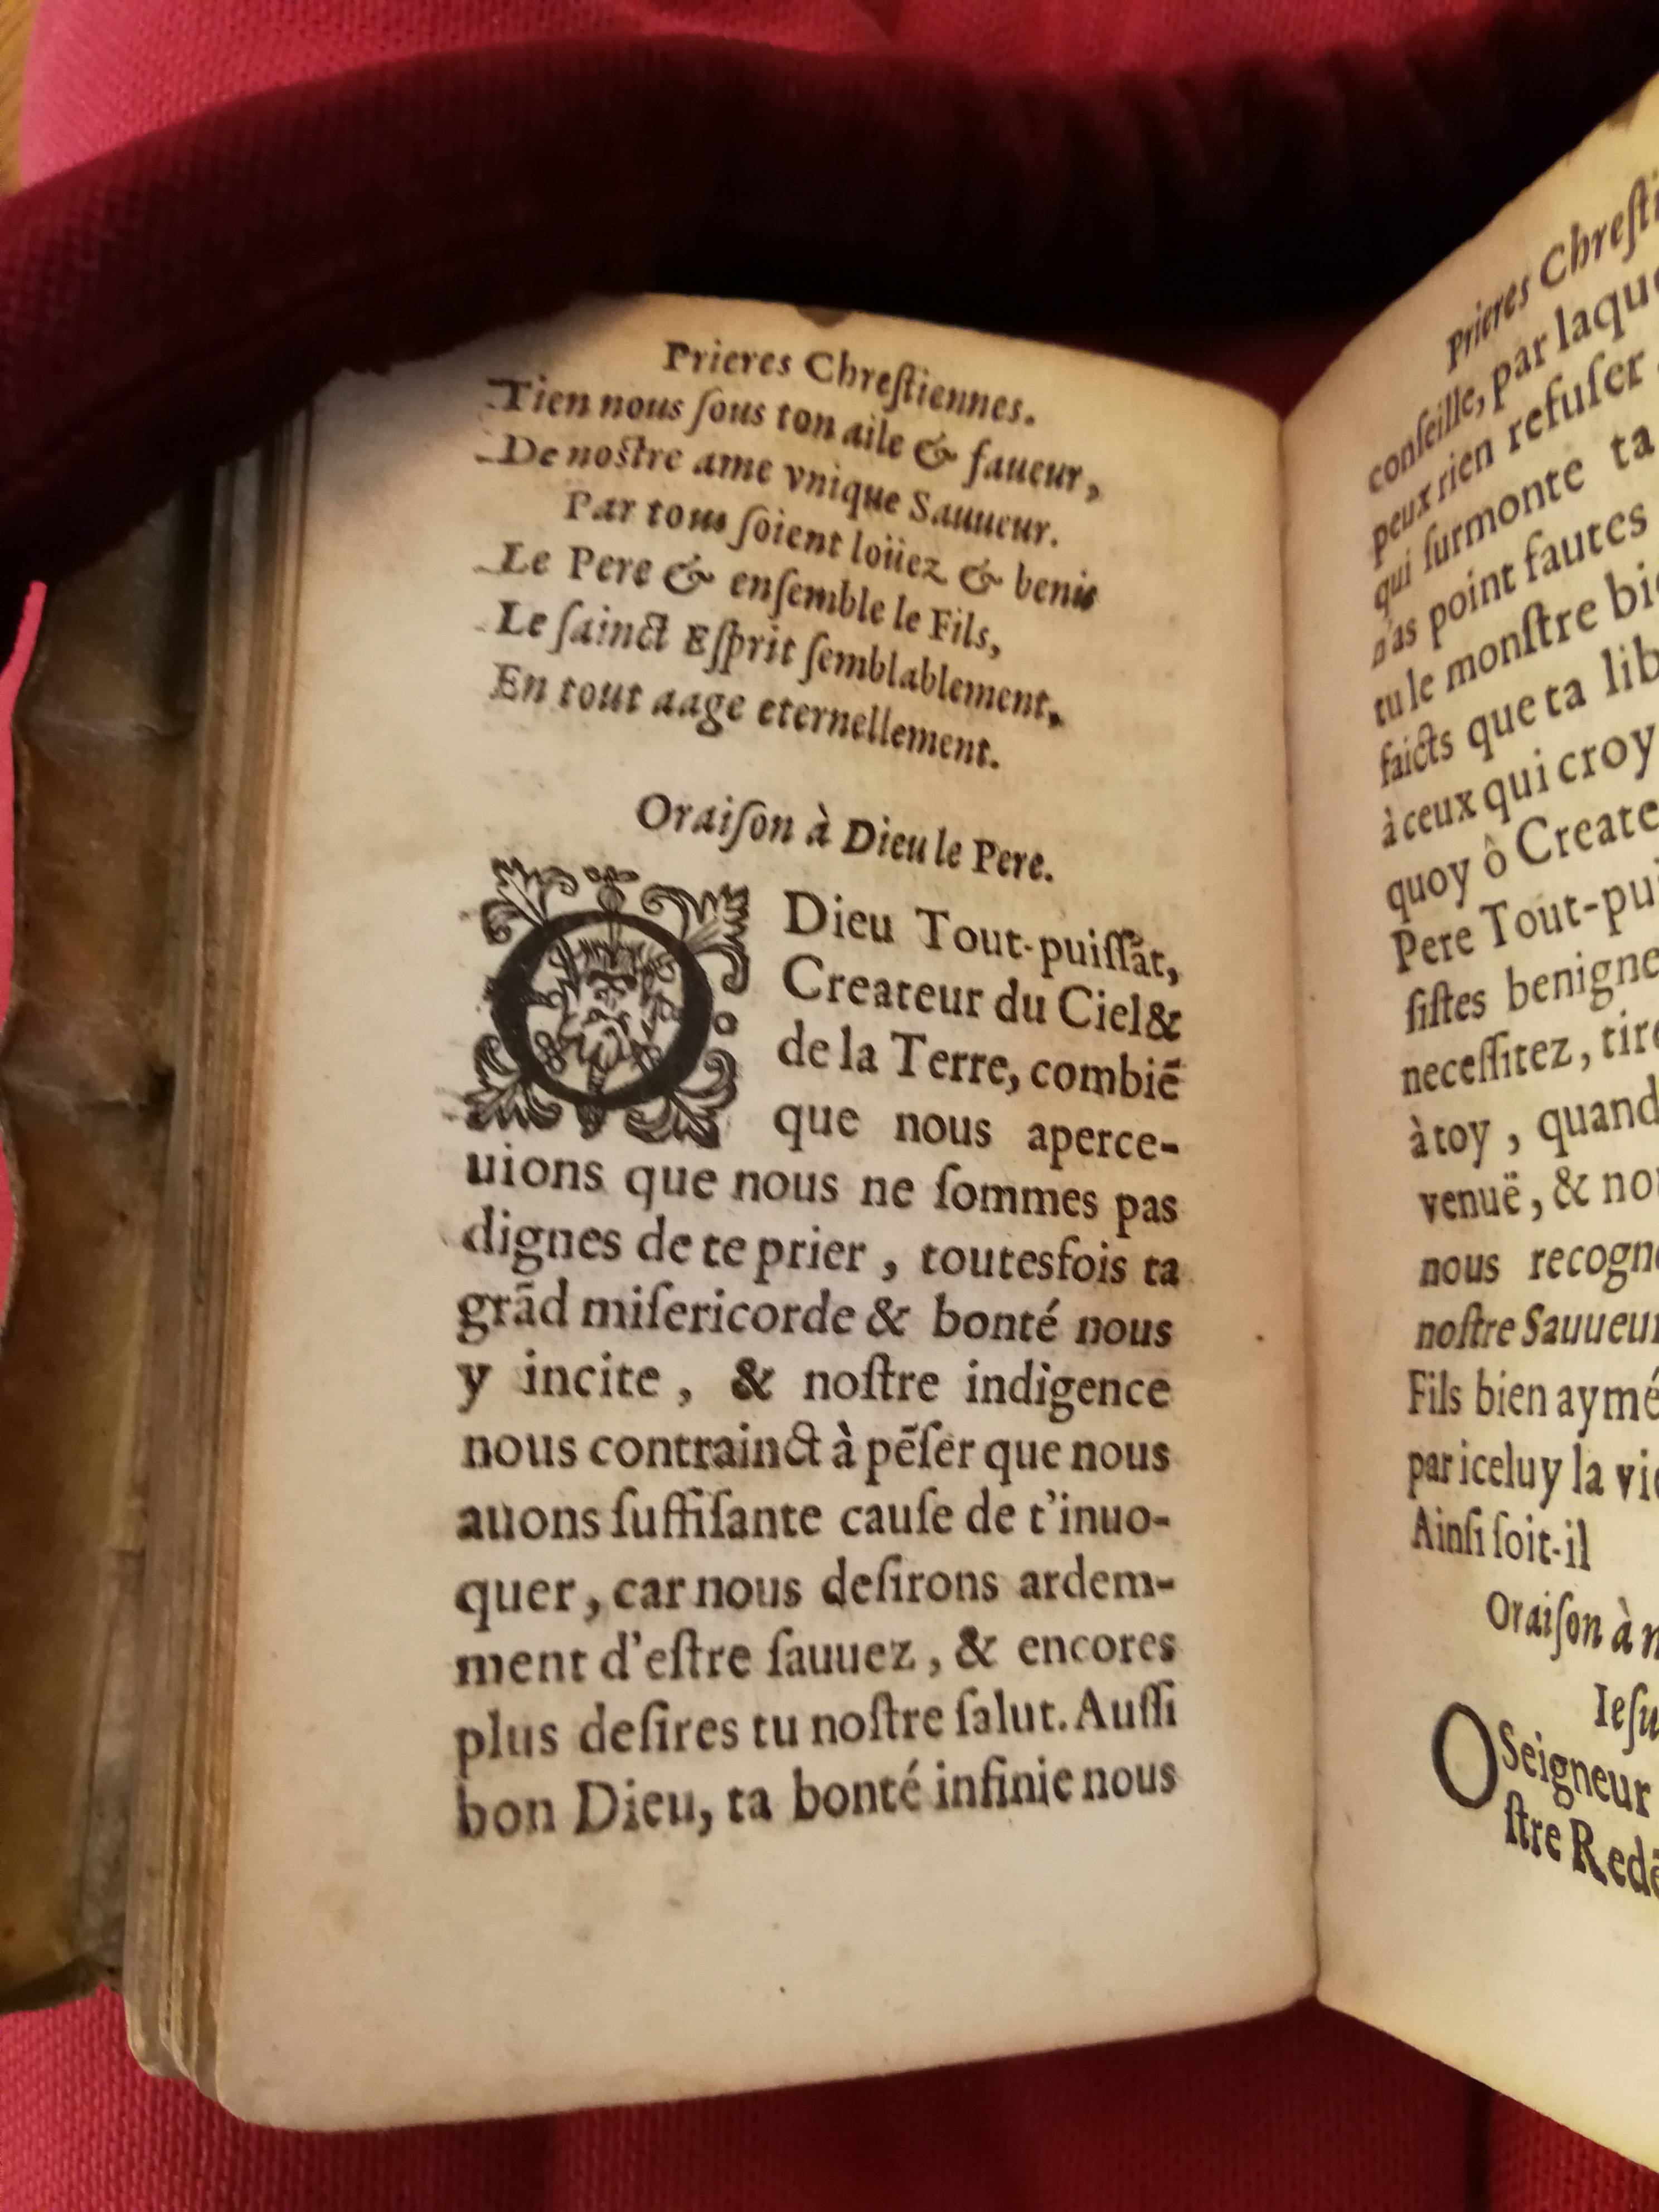 Prieres Chreſtiennes.
Tien nous ſous ton aile & faueur,
De noſtre ame vnique Sauueur.
Par tous ſoient loüez & benis
Le Pere & enſemble le Fils,
Le ſainct Eſprit ſemblablement,
En tout aage eternellement.
Oraiſon à Dieu le Pere.
O Dieu Tout-puiſſāt,
Createur du Ciel &
de la Terre, combiē
que nous aperce-
uions que nous ne ſommes pas
dignes de te prier, toutesfois ta
grād miſericorde & bonté nous
y incite, & noſtre indigence
nous contrainct à pēſer que nous
auons ſuffiſante cauſe de t'inuo-
quer, car nous deſirons ardem-
ment d'eſtre ſauuez, & encores
plus deſires tu noſtre ſalut. Auſſi
bon Dieu, ta bonté infinie nous
Prieres Chreſti
conſeille, par laque
peux rien refuſer
qui ſurmonte ta
n'as point fautes
tu le monſtre bie
faicts que ta lib
à ceux qui croy
quoy ô Create
Pere Tout-pui
ſiſtes benigne
neceſſitez, tire
à toy, quand
venuë, & no
nous recogn
noſtre Sauueur
Fils bien aymé
par iceluy la vie
Ainſi ſoit-il
Oraiſon à n
Ieſu
O Seigneur
ſtre Redē